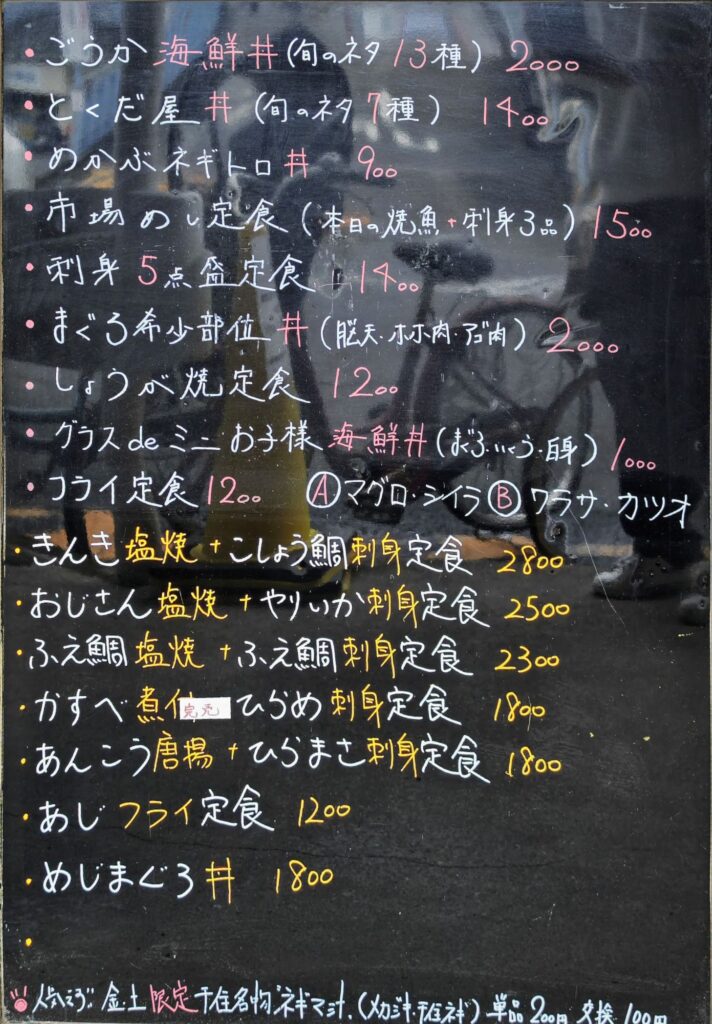 ・ごうか海鮮丼(旬のネタ13種) 2000
・とくだ屋丼(旬のネタ7種) 1400
・めかぶネギトロ丼 900
・市場めし定食(本日の焼魚+刺身3品) 1500
・刺身5点盛定食 1400
・まぐろ希少部位丼(脳天・ホホ肉・アゴ肉) 2000
・しょうが焼定食 1200
・グラスdeミニお子様海鮮丼(まぐろ・いくら・白身) 1000
・フライ定食1200 Ⓐマグロ・シイラⒷワラサ・カツオ
・きんき塩焼+こしょう鯛刺身定食 2800
・おじさん塩焼+やりいか刺身定食 2500
・ふえ鯛塩焼+ふえ鯛刺身定食 2300
・かすべ煮付 完売 ひらめ刺身定食 1800
・あんこう唐揚+ひらまさ刺身定食 1800
・あじフライ定食 1200
・めじまぐろ丼 1800
・
金・土限定千住名物"ネギマ汁。(メカジキ・千住ネギ) 単品200円 交換100円